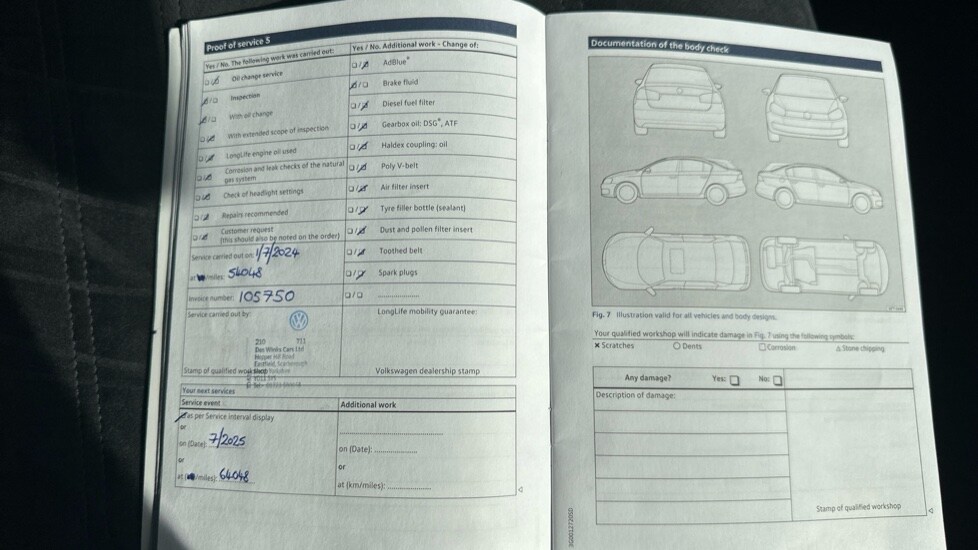 Proof of service 5
Yes / No. The following work was carried out:
Oil change service
Inspection
With oil change
With extended scope of inspection
LongLife engine oil used
Corrosion and leak checks of the natural
gas system
Check of headlight settings
Repairs recommended
Customer request
(this should also be noted on the order)
Service carried out on: 1/7/2024
at /miles: 54048
Invoice number: 105750
Service carried out by:
210 711
Des Winks Cars Ltd
Hopper Hill Road
Eastfield, Scarborough
Stamp of qualified workshop
Yes / No. Additional work - Change of:
AdBlue®
Brake fluid
Diesel fuel filter
Gearbox oil: DSG®, ATF
Haldex coupling: oil
Poly V-belt
Air filter insert
Tyre filler bottle (sealant)
Dust and pollen filter insert
Toothed belt
Spark plugs
LongLife mobility guarantee:
Volkswagen dealership stamp
Your next services
Service event
as per Service interval display
or
on (Date): 7/2025
or
at (/miles): 64048
Additional work
on (Date):
or
at (km/miles):
Documentation of the body check
Fig. 7 Illustration valid for all vehicles and body designs.
Your qualified workshop will indicate damage in Fig. 7 using the following symbols:
× Scratches ○ Dents □ Corrosion △ Stone chipping
Any damage? Yes: □ No: □
Description of damage:
Stamp of qualified workshop
3G0012720SD